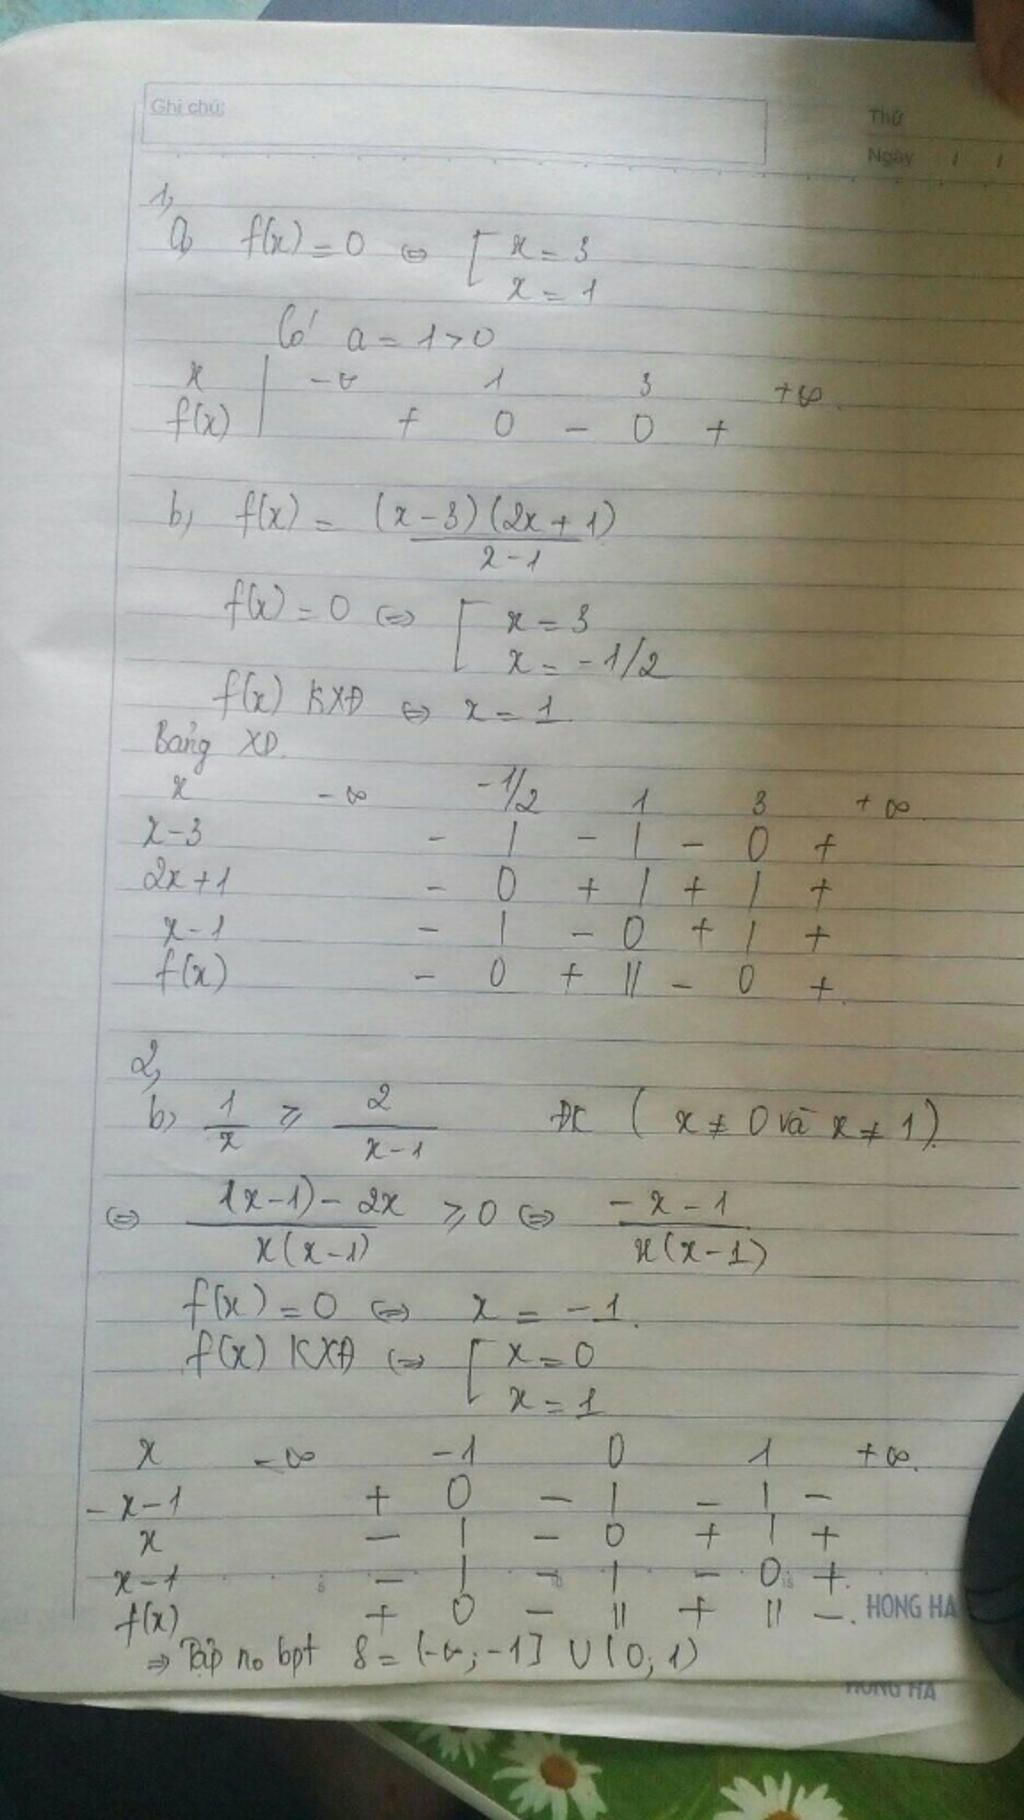 Ghi chú:
Thứ
Ngày / /
1,
a, f(x) = 0 ⇔ [ x = 3
x = 1
Có a = 1 > 0
x | -∞ 1 3 +∞
f(x) | + 0 - 0 +
b, f(x) = (x-3)(2x+1)
x-1
f(x) = 0 ⇔ [ x = 3
x = -1/2
f(x) KXĐ ⇔ x = 1
Bảng XD.
x -∞ -1/2 1 3 +∞
x-3 - | - | - 0 +
2x+1 - 0 + | + | +
x-1 - | - 0 + | +
f(x) - 0 + || - 0 +
2,
b, 1/x ≥ 2/(x-1) ĐK ( x ≠ 0 và x ≠ 1)
⇔ (1(x-1) - 2x)/(x(x-1)) ≥ 0 ⇔ (-x-1)/(x(x-1))
f(x) = 0 ⇔ x = -1.
f(x) KXĐ ⇔ [ x = 0
x = 1
x -∞ -1 0 1 +∞
-x-1 + 0 - | - | -
x - | - 0 + | +
x-1 - | - | - 0 +
f(x) + 0 - || + || -.
HONG HA
⇒ Tập no bpt S = (-∞; -1] ∪ (0; 1)
HONG HA